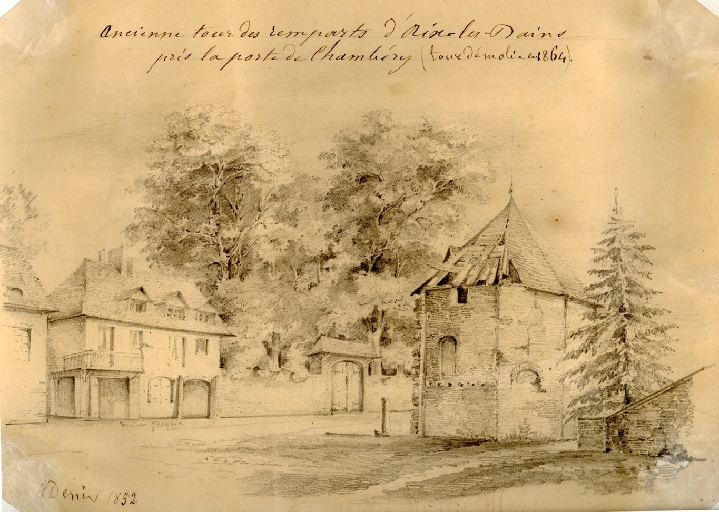 Ancienne tour des remparts d'Aix-les-Bains
près la porte de Chambéry (tour démolie en 1864).
maison
Dessin 1852